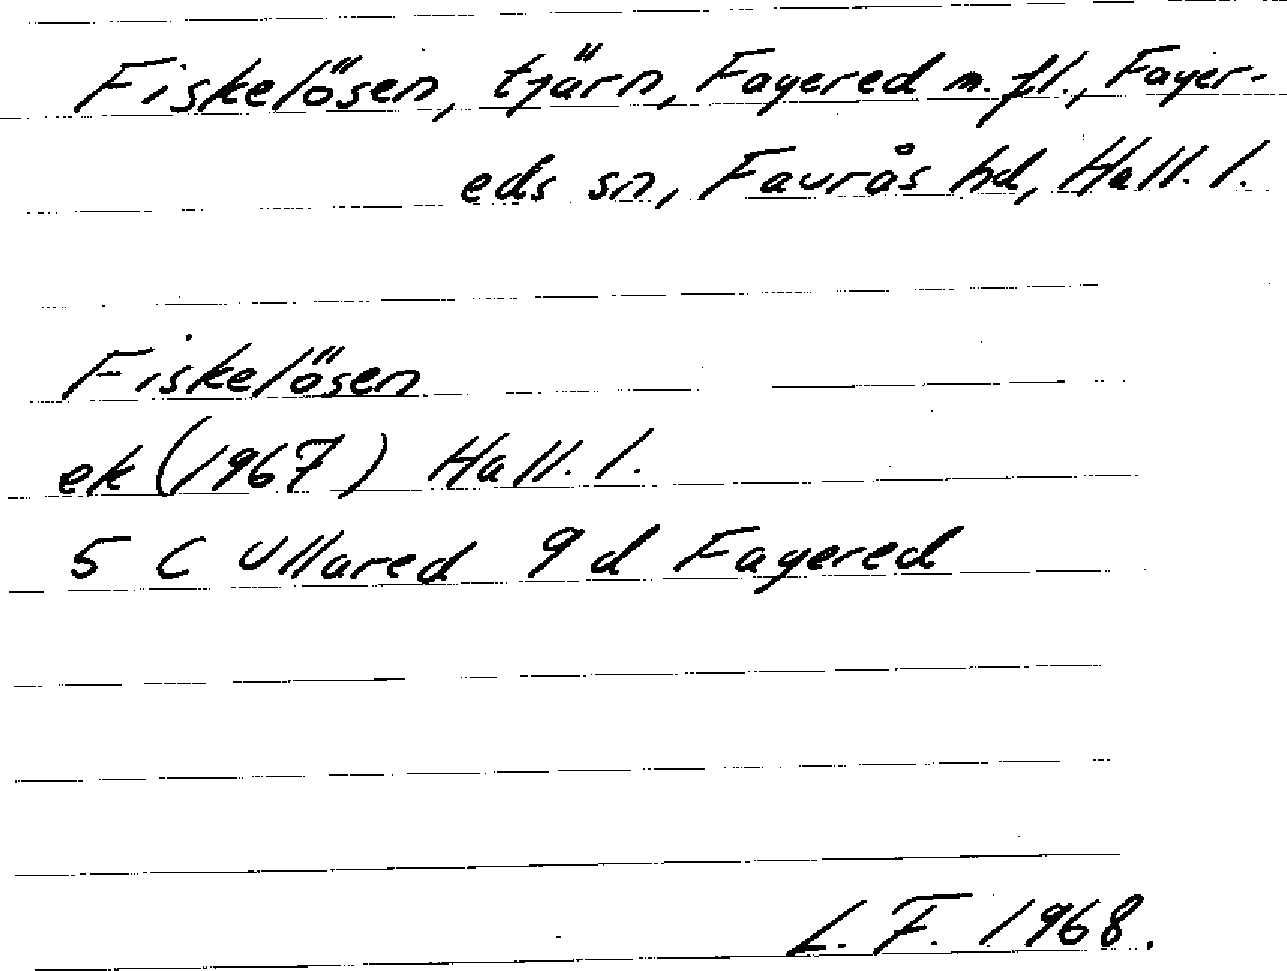 Fiskelösen, tjärn, Fagered m.fl., Fager-
eds sn, Faurås hd, Hall. l.
Fiskelösen
ek (1967) Hall. l.
5 C Ullared 9 d Fagered
L. F. 1968.